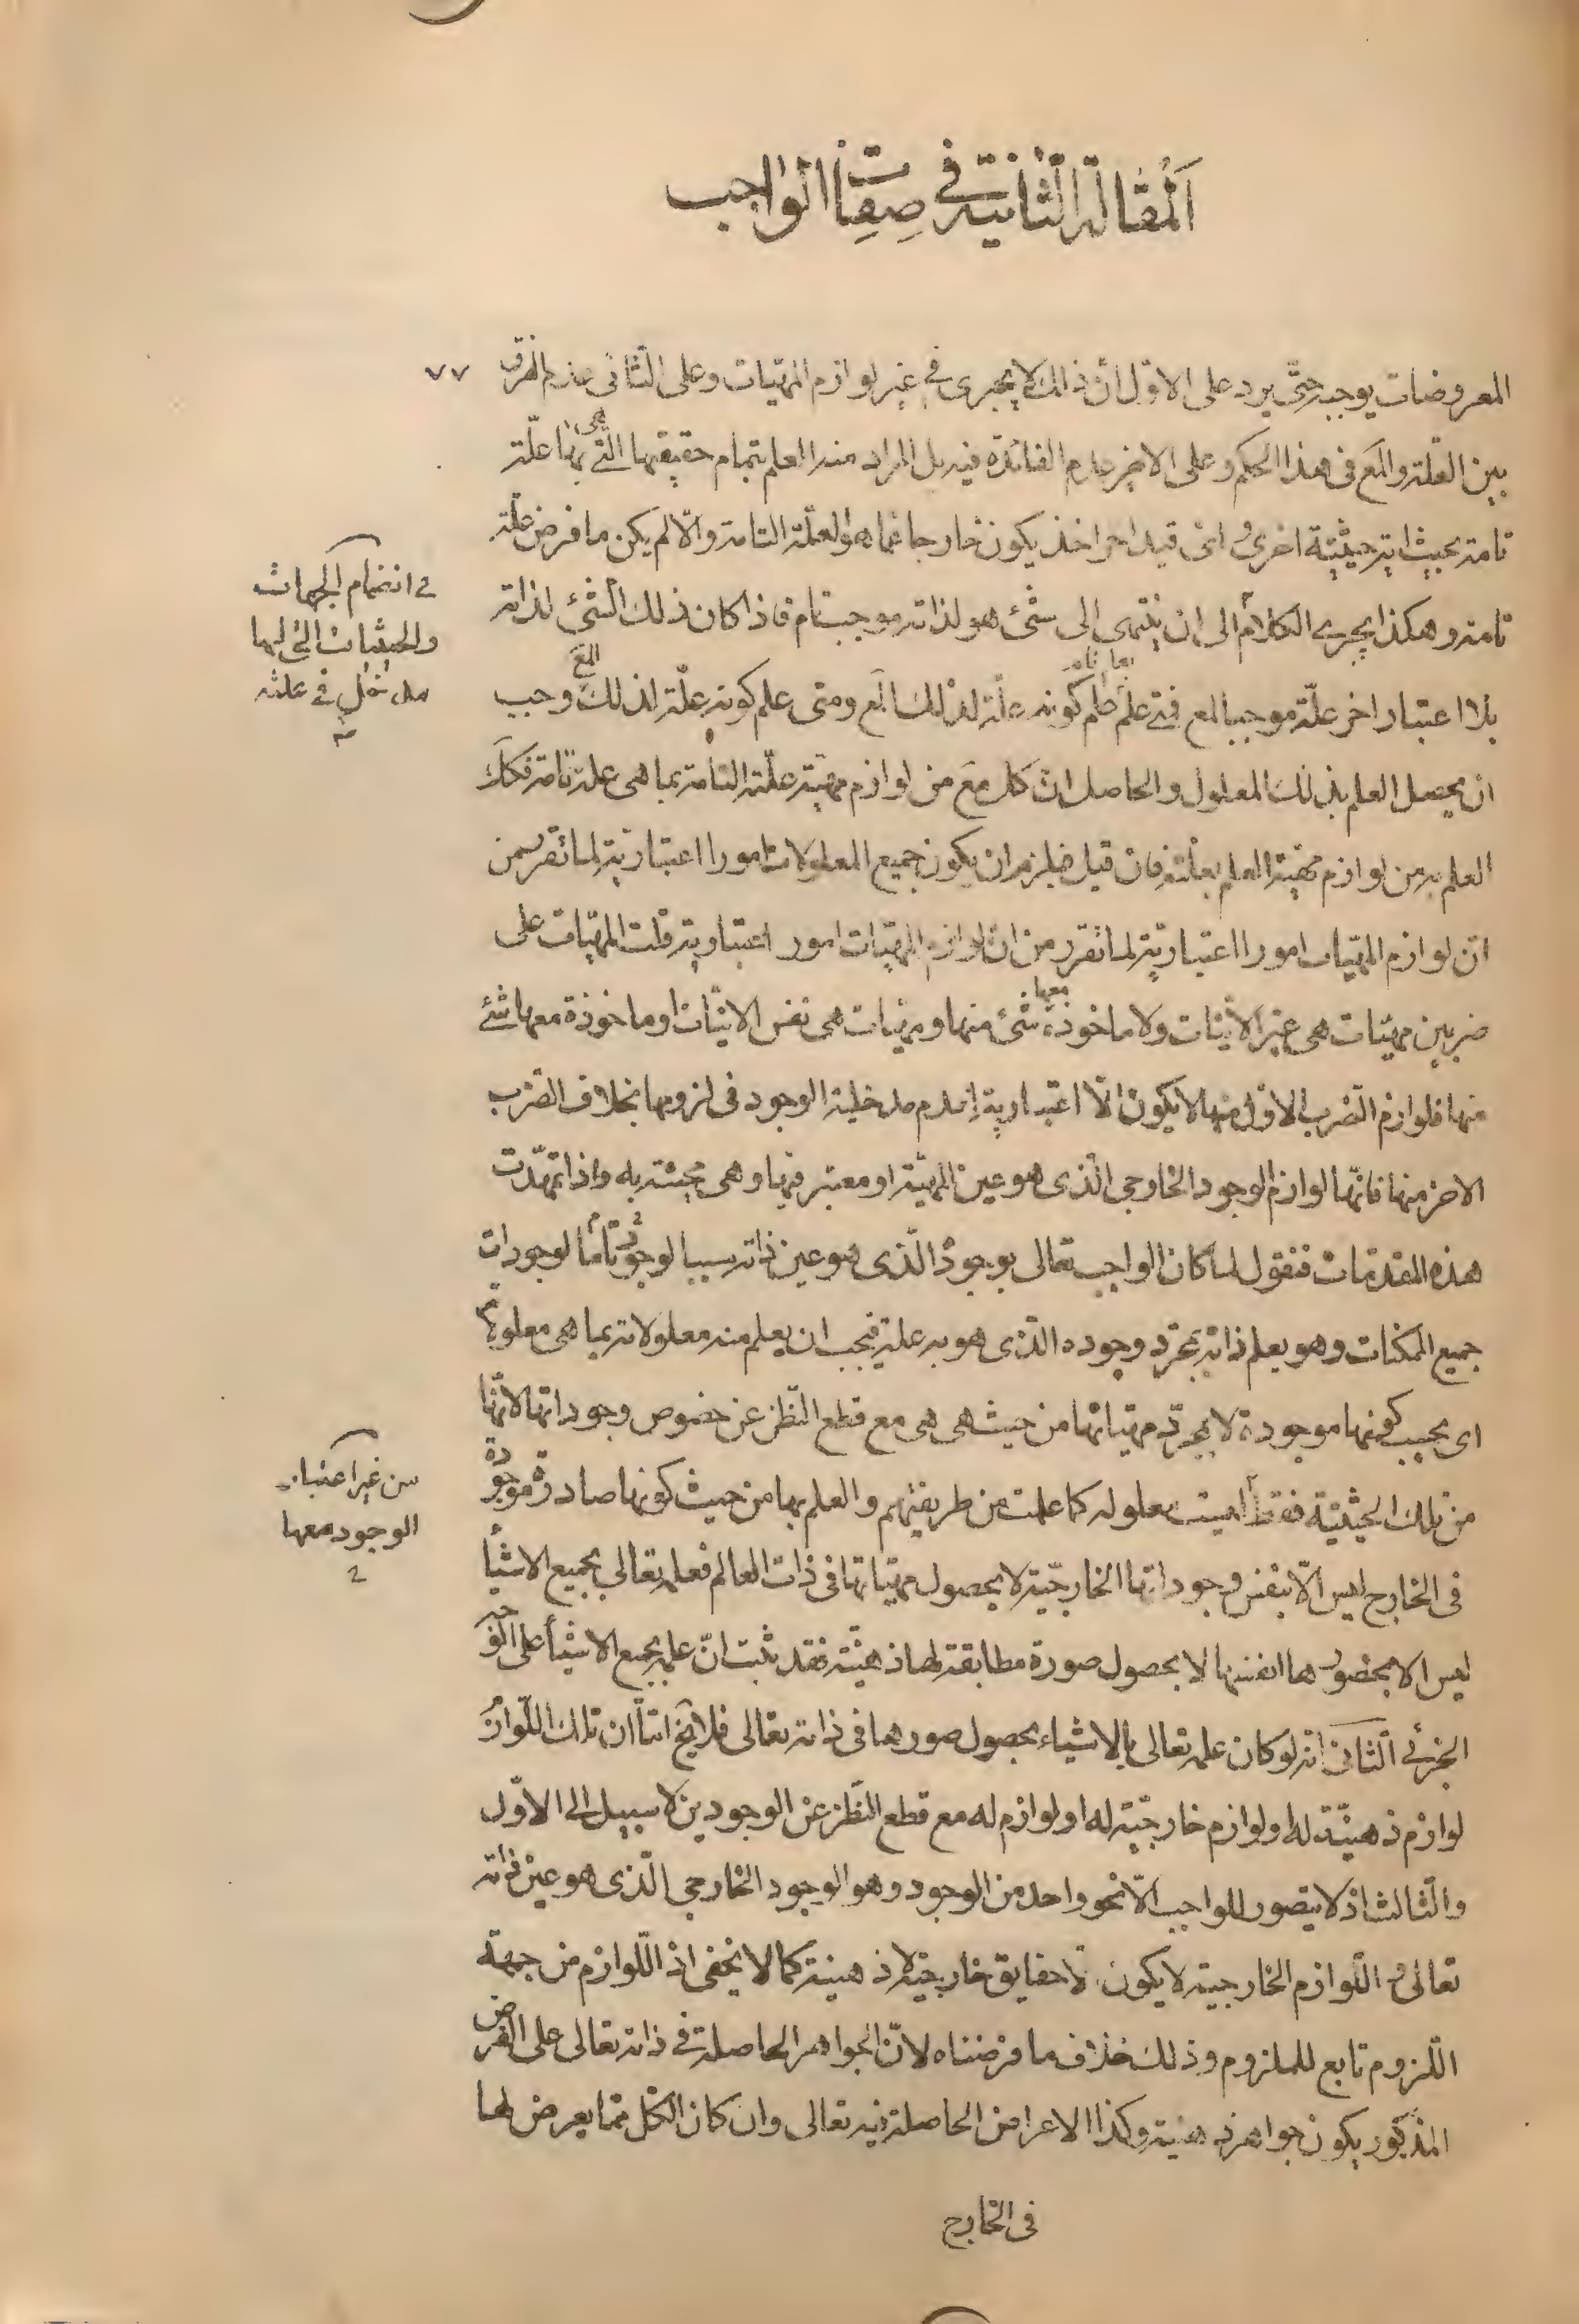 المقالة الثانية في صفات الواجب
٧٧
المعروضات يوجبه حتى يرد على الاول ان ذلك لا يجرى في غير لوازم المهيات وعلى الثانى عدم الفرق
بين العلة والمع فى هذا الحكم وعلى الاخير عدم الفائدة فيه بل المراد منه العلم بتمام حقيقتها التى هى بها علة
تامة بحيث اية حيثية اخرى او اى قيد اخر اخذ يكون خارجا عما هو العلة التامة والا لم يكن ما فرض علة
تامة وهكذا يجرى الكلام الى ان ينتهى الى شئ هو لذاته موجب تام فاذا كان ذلك الشئ لذاته
بلا اعتبار اخر علة موجبا لمع فمتى علم علم كونه علة لذلك المع ومتى علم كونه علة لذلك المع وجب
ان يحصل العلم بذلك المعلول والحاصل ان كل مع من لوازم مهية علته التامة بما هى علة تامة فكك
العلم به من لوازم مهية العلم بعلته فان قيل فيلزم ان يكون جميع المعلولات امورا اعتبارية لما تقرر من
ان لوازم المهيات امورا اعتبارية لما تقرر من ان لوازم المهيات امور اعتبارية قلت المهيات على
ضربين مهيات هى غير الانيات ولا ماخوذة معها شئ منها ومهيات هى نفس الانيات او ماخوذة معها شئ
منها فلوازم الضرب الاول منها لا يكون الا اعتبارية لعدم مدخلية الوجود فى لزومها بخلاف الضرب
الاخر منها فانها لوازم الوجود الخارجى الذى هو عين المهية او معتبر فيها وهى محيثة به واذا تمهدت
هذه المقدمات فنقول لما كان الواجب تعالى بوجوده الذى هو عين ذاته سببا تاما لوجودات
جميع الممكنات وهو يعلم ذاته بمجرد وجوده الذى هو به علة فيجب ان يعلم منه معلولاته بما هى معلولاته
اى بحسب كونها موجودة لا بمجرد مهياتها من حيث هى هى مع قطع النظر عن خصوص وجوداتها لانها
من تلك الحيثية فقط ليست معلوله كما علمت من طريقتهم والعلم بها من حيث كونها صادرة موجودة
فى الخارج ليس الا بنفس وجوداتها الخارجية لا بحصول مهياتها فى ذات العالم فعلمه تعالى بجميع الاشيأ
ليس الا بحضورها انفسها لا بحصول صورة مطابقة لها ذهنية فقد ثبت ان علمه بجميع الاشيأ على الوجه
الجزئى الثانى انه لو كان علمه تعالى بالاشياء بحصول صورها فى ذاته تعالى فلا يخ اما ان تلك اللوازم
لوازم ذهنية له او لوازم خارجية له او لوازم له مع قطع النظر عن الوجودين لا سبيل الى الاول
والثالث اذ لا يتصور للواجب الا نحو واحد من الوجود وهو الوجود الخارجى الذى هو عين ذاته
تعالى و اللوازم الخارجية لا يكون الا حقايق خارجية لا ذهنية كما لا يخفى اذ اللوازم من جهة
اللزوم تابع للملزوم وذلك خلاف ما فرضناه لان الجواهر الحاصلة فى ذاته تعالى على الفرض
المذكور يكون جواهر ذهنية وكذا الاعراض الحاصلة فيه تعالى وان كان الكل مما يعرض لها
فى الخارج
فى انضمام الجهات
والحيثيات التى لها
مدخل فى علته
من غير اعتبار
الوجود معها